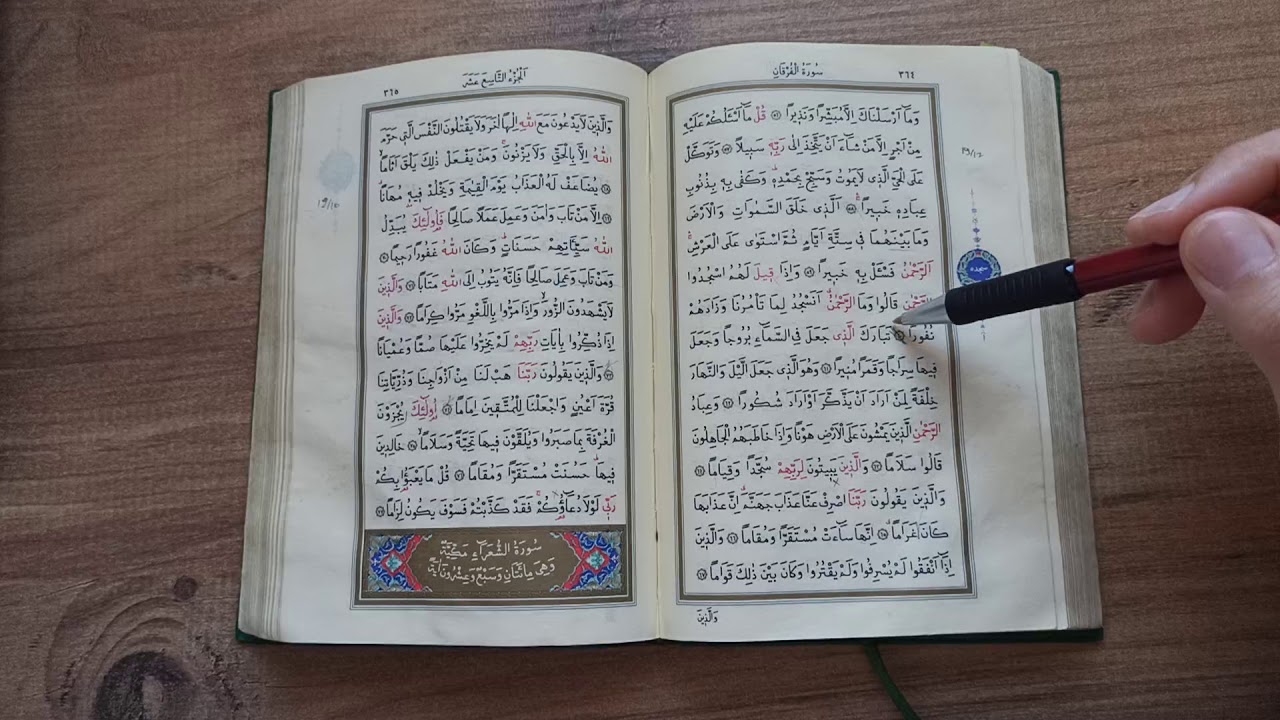 سُورَةُ الْفُرْقَانِ ٣٦٤
وَمَٓا اَرْسَلْنَاكَ اِلَّا مُبَشِّرًا وَنَذ۪يرًا ﴿٥٦﴾ قُلْ مَٓا اَسْـَٔلُكُمْ عَلَيْهِ
مِنْ اَجْرٍ اِلَّا مَنْ شَٓاءَ اَنْ يَتَّخِذَ اِلٰى رَبِّه۪ سَب۪يلًا ﴿٥٧﴾ وَتَوَكَّلْ
عَلَى الْحَيِّ الَّذ۪ي لَا يَمُوتُ وَسَبِّحْ بِحَمْدِه۪ۜ وَكَفٰى بِه۪ بِذُنُوبِ
عِبَادِه۪ خَب۪يرًاۚ ﴿٥٨﴾ اَلَّذ۪ي خَلَقَ السَّمٰوَاتِ وَالْاَرْضَ
وَمَا بَيْنَهُمَا ف۪ي سِتَّةِ اَيَّامٍ ثُمَّ اسْتَوٰى عَلَى الْعَرْشِۚ
اَلرَّحْمٰنُ فَسْـَٔلْ بِه۪ خَب۪يرًا ﴿٥٩﴾ وَاِذَا ق۪يلَ لَهُمُ اسْجُدُوا
لِلرَّحْمٰنِ قَالُوا وَمَا الرَّحْمٰنُ اَنَسْجُدُ لِمَا تَأْمُرُنَا وَزَادَهُمْ
نُفُورًا ﴿٦٠﴾ تَبَارَكَ الَّذ۪ي جَعَلَ فِي السَّمَٓاءِ بُرُوجًا وَجَعَلَ
ف۪يهَا سِرَاجًا وَقَمَرًا مُن۪يرًا ﴿٦١﴾ وَهُوَ الَّذ۪ي جَعَلَ الَّيْلَ وَالنَّهَارَ
خِلْفَةً لِمَنْ اَرَادَ اَنْ يَذَّكَّرَ اَوْ اَرَادَ شُكُورًا ﴿٦٢﴾ وَعِبَادُ
الرَّحْمٰنِ الَّذ۪ينَ يَمْشُونَ عَلَى الْاَرْضِ هَوْنًا وَاِذَا خَاطَبَهُمُ الْجَاهِلُونَ
قَالُوا سَلَامًا ﴿٦٣﴾ وَالَّذ۪ينَ يَب۪يتُونَ لِرَبِّهِمْ سُجَّدًا وَقِيَامًا ﴿٦٤﴾
وَالَّذ۪ينَ يَقُولُونَ رَبَّنَا اصْرِفْ عَنَّا عَذَابَ جَهَنَّمَۗ اِنَّ عَذَابَهَا
كَانَ غَرَامًا ﴿٦٥﴾ اِنَّهَا سَٓاءَتْ مُسْتَقَرًّا وَمُقَامًا ﴿٦٦﴾ وَالَّذ۪ينَ
اِذَٓا اَنْفَقُوا لَمْ يُسْرِفُوا وَلَمْ يَقْتُرُوا وَكَانَ بَيْنَ ذٰلِكَ قَوَامًا ﴿٦٧﴾
وَالَّذ۪ينَ
سجده
اَلْجُزْءُ التَّاسِعَ عَشَرَ ٣٦٥
وَالَّذ۪ينَ لَا يَدْعُونَ مَعَ اللّٰهِ اِلٰهًا اٰخَرَ وَلَا يَقْتُلُونَ النَّفْسَ الَّت۪ي حَرَّمَ
اللّٰهُ اِلَّا بِالْحَقِّ وَلَا يَزْنُونَۚ وَمَنْ يَفْعَلْ ذٰلِكَ يَلْقَ اَثَامًا
﴿٦٨﴾ يُضَاعَفْ لَهُ الْعَذَابُ يَوْمَ الْقِيٰمَةِ وَيَخْلُدْ ف۪يه۪ مُهَانًا
﴿٦٩﴾ اِلَّا مَنْ تَابَ وَاٰمَنَ وَعَمِلَ عَمَلًا صَالِحًا فَاُو۬لٰٓئِكَ يُبَدِّلُ
اللّٰهُ سَيِّـَٔاتِهِمْ حَسَنَاتٍۜ وَكَانَ اللّٰهُ غَفُورًا رَح۪يمًا ﴿٧٠﴾
وَمَنْ تَابَ وَعَمِلَ صَالِحًا فَاِنَّهُ يَتُوبُ اِلَى اللّٰهِ مَتَابًا ﴿٧١﴾ وَالَّذ۪ينَ
لَا يَشْهَدُونَ الزُّورَۙ وَاِذَا مَرُّوا بِاللَّغْوِ مَرُّوا كِرَامًا ﴿٧٢﴾ وَالَّذ۪ينَ
اِذَا ذُكِّرُوا بِاٰيَاتِ رَبِّهِمْ لَمْ يَخِرُّوا عَلَيْهَا صُمًّا وَعُمْيَانًا
﴿٧٣﴾ وَالَّذ۪ينَ يَقُولُونَ رَبَّنَا هَبْ لَنَا مِنْ اَزْوَاجِنَا وَذُرِّيَّاتِنَا
قُرَّةَ اَعْيُنٍ وَاجْعَلْنَا لِلْمُتَّق۪ينَ اِمَامًا ﴿٧٤﴾ اُو۬لٰٓئِكَ يُجْزَوْنَ
الْغُرْفَةَ بِمَا صَبَرُوا وَيُلَقَّوْنَ ف۪يهَا تَحِيَّةً وَسَلَامًاۙ ﴿٧٥﴾ خَالِد۪ينَ
ف۪يهَاۜ حَسُنَتْ مُسْتَقَرًّا وَمُقَامًا ﴿٧٦﴾ قُلْ مَا يَعْبَؤُ۬ا بِكُمْ
رَبّ۪ي لَوْلَا دُعَٓاؤُ۬كُمْۚ فَقَدْ كَذَّبْتُمْ فَسَوْفَ يَكُونُ لِزَامًا ﴿٧٧﴾
سُورَةُ الشُّعَرَٓاءِ مَكِّيَّةٌ
وَهِيَ مِائَتَانِ وَسَبْعٌ وَعِشْرُونَ اٰيَةً